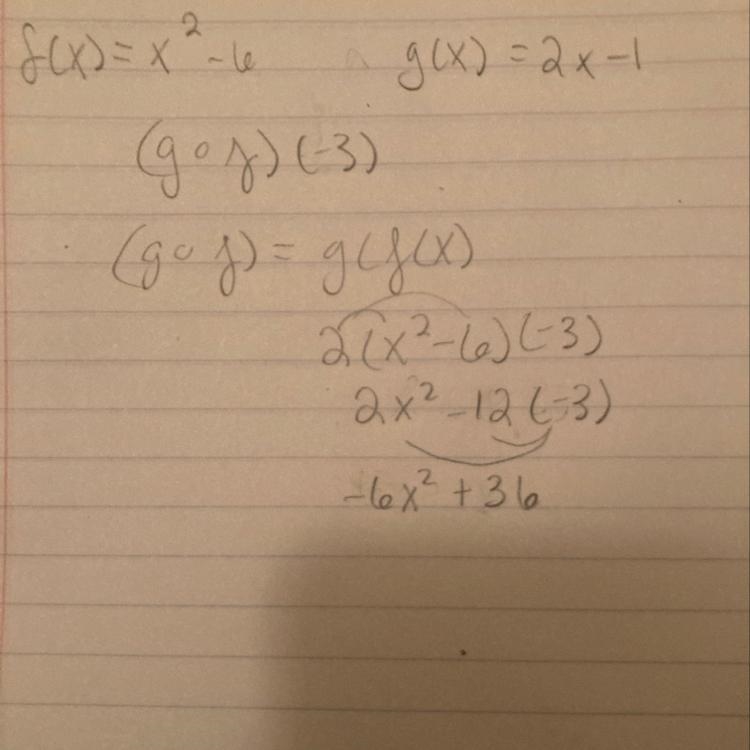 f(x) = x² - 6 g(x) = 2x - 1
(g ∘ f)(-3)
(g ∘ f) = g(f(x)
2(x² - 6)(-3)
2x² - 12(-3)
-6x² + 36